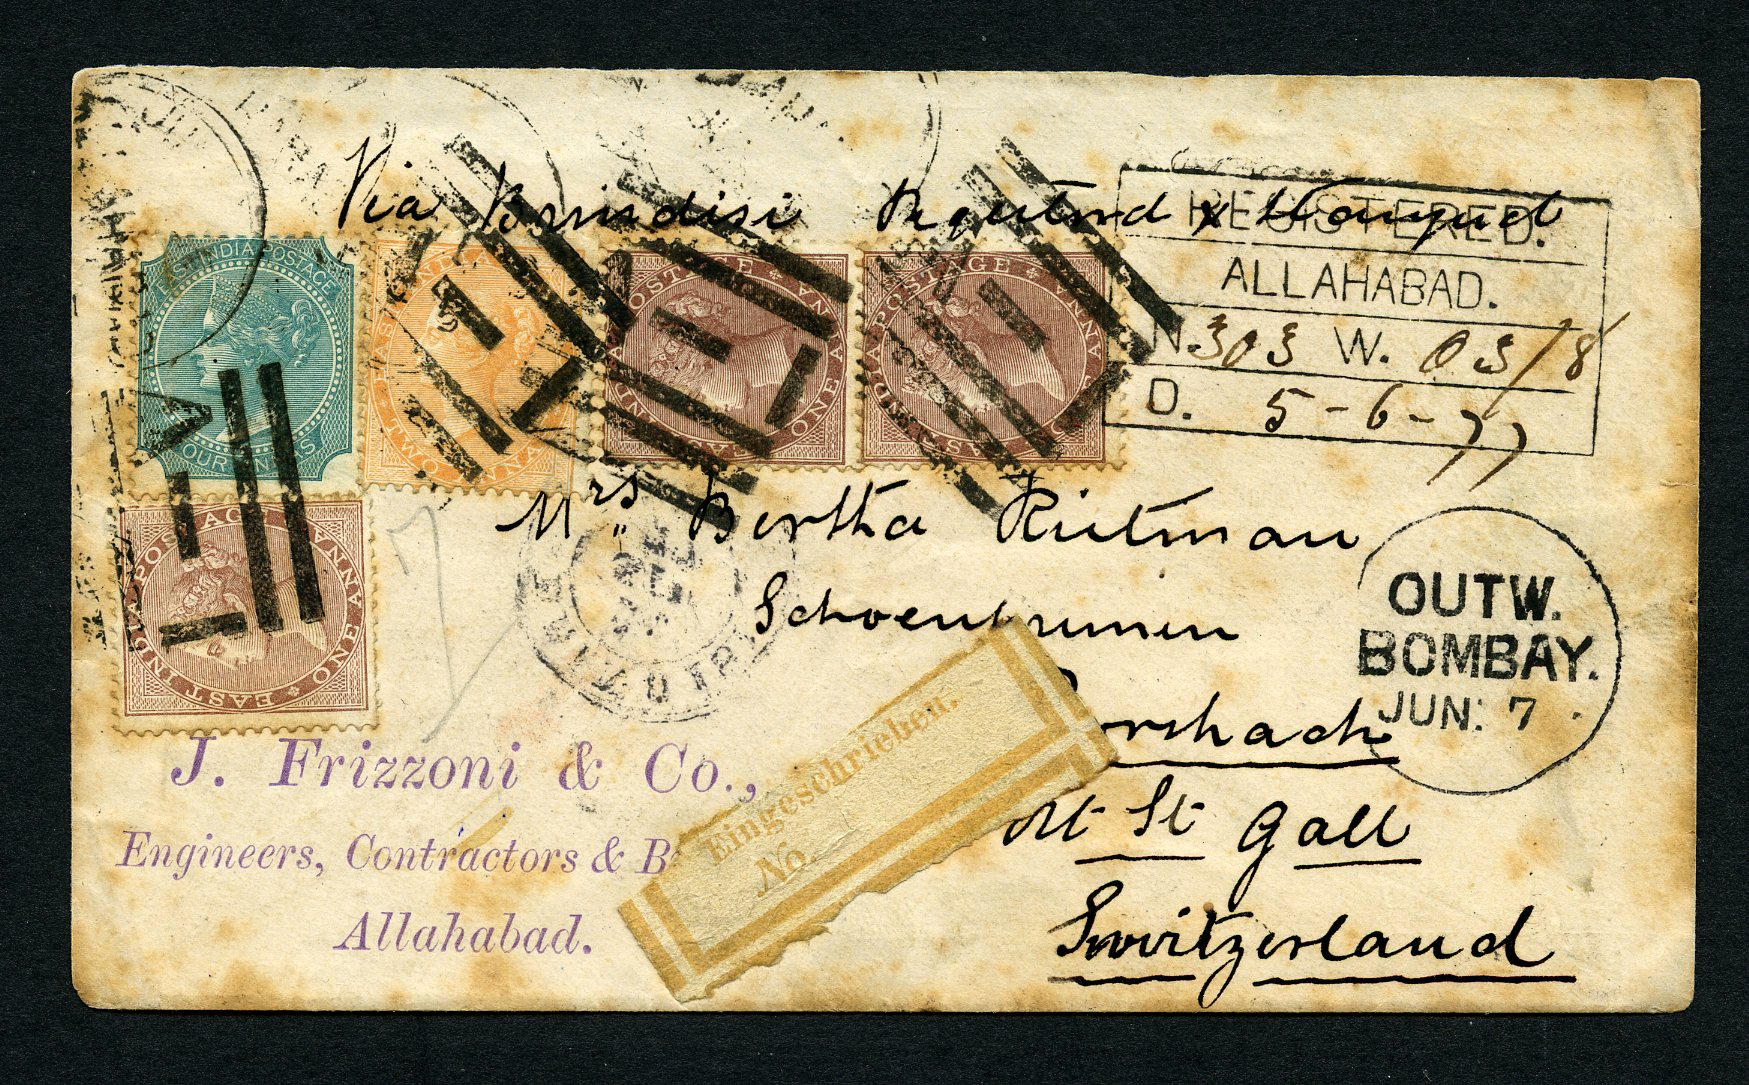 Via Brindisi Registered
REGISTERED.
ALLAHABAD.
N. 303 W. 03/8
D. 5-6-77
EAST INDIA POSTAGE
FOUR ANNAS
EAST INDIA
TWO ANNAS
EAST INDIA POSTAGE ONE ANNA
EAST INDIA POSTAGE ONE ANNA
EAST INDIA POSTAGE ONE ANNA
Mrs. Bertha Rietman
Schoenbrunnen
Rorshach
St Gall
Switzerland
OUTW.
BOMBAY.
JUN: 7
J. Frizzoni & Co.,
Engineers, Contractors & B
Allahabad.
Eingeschrieben.
No.